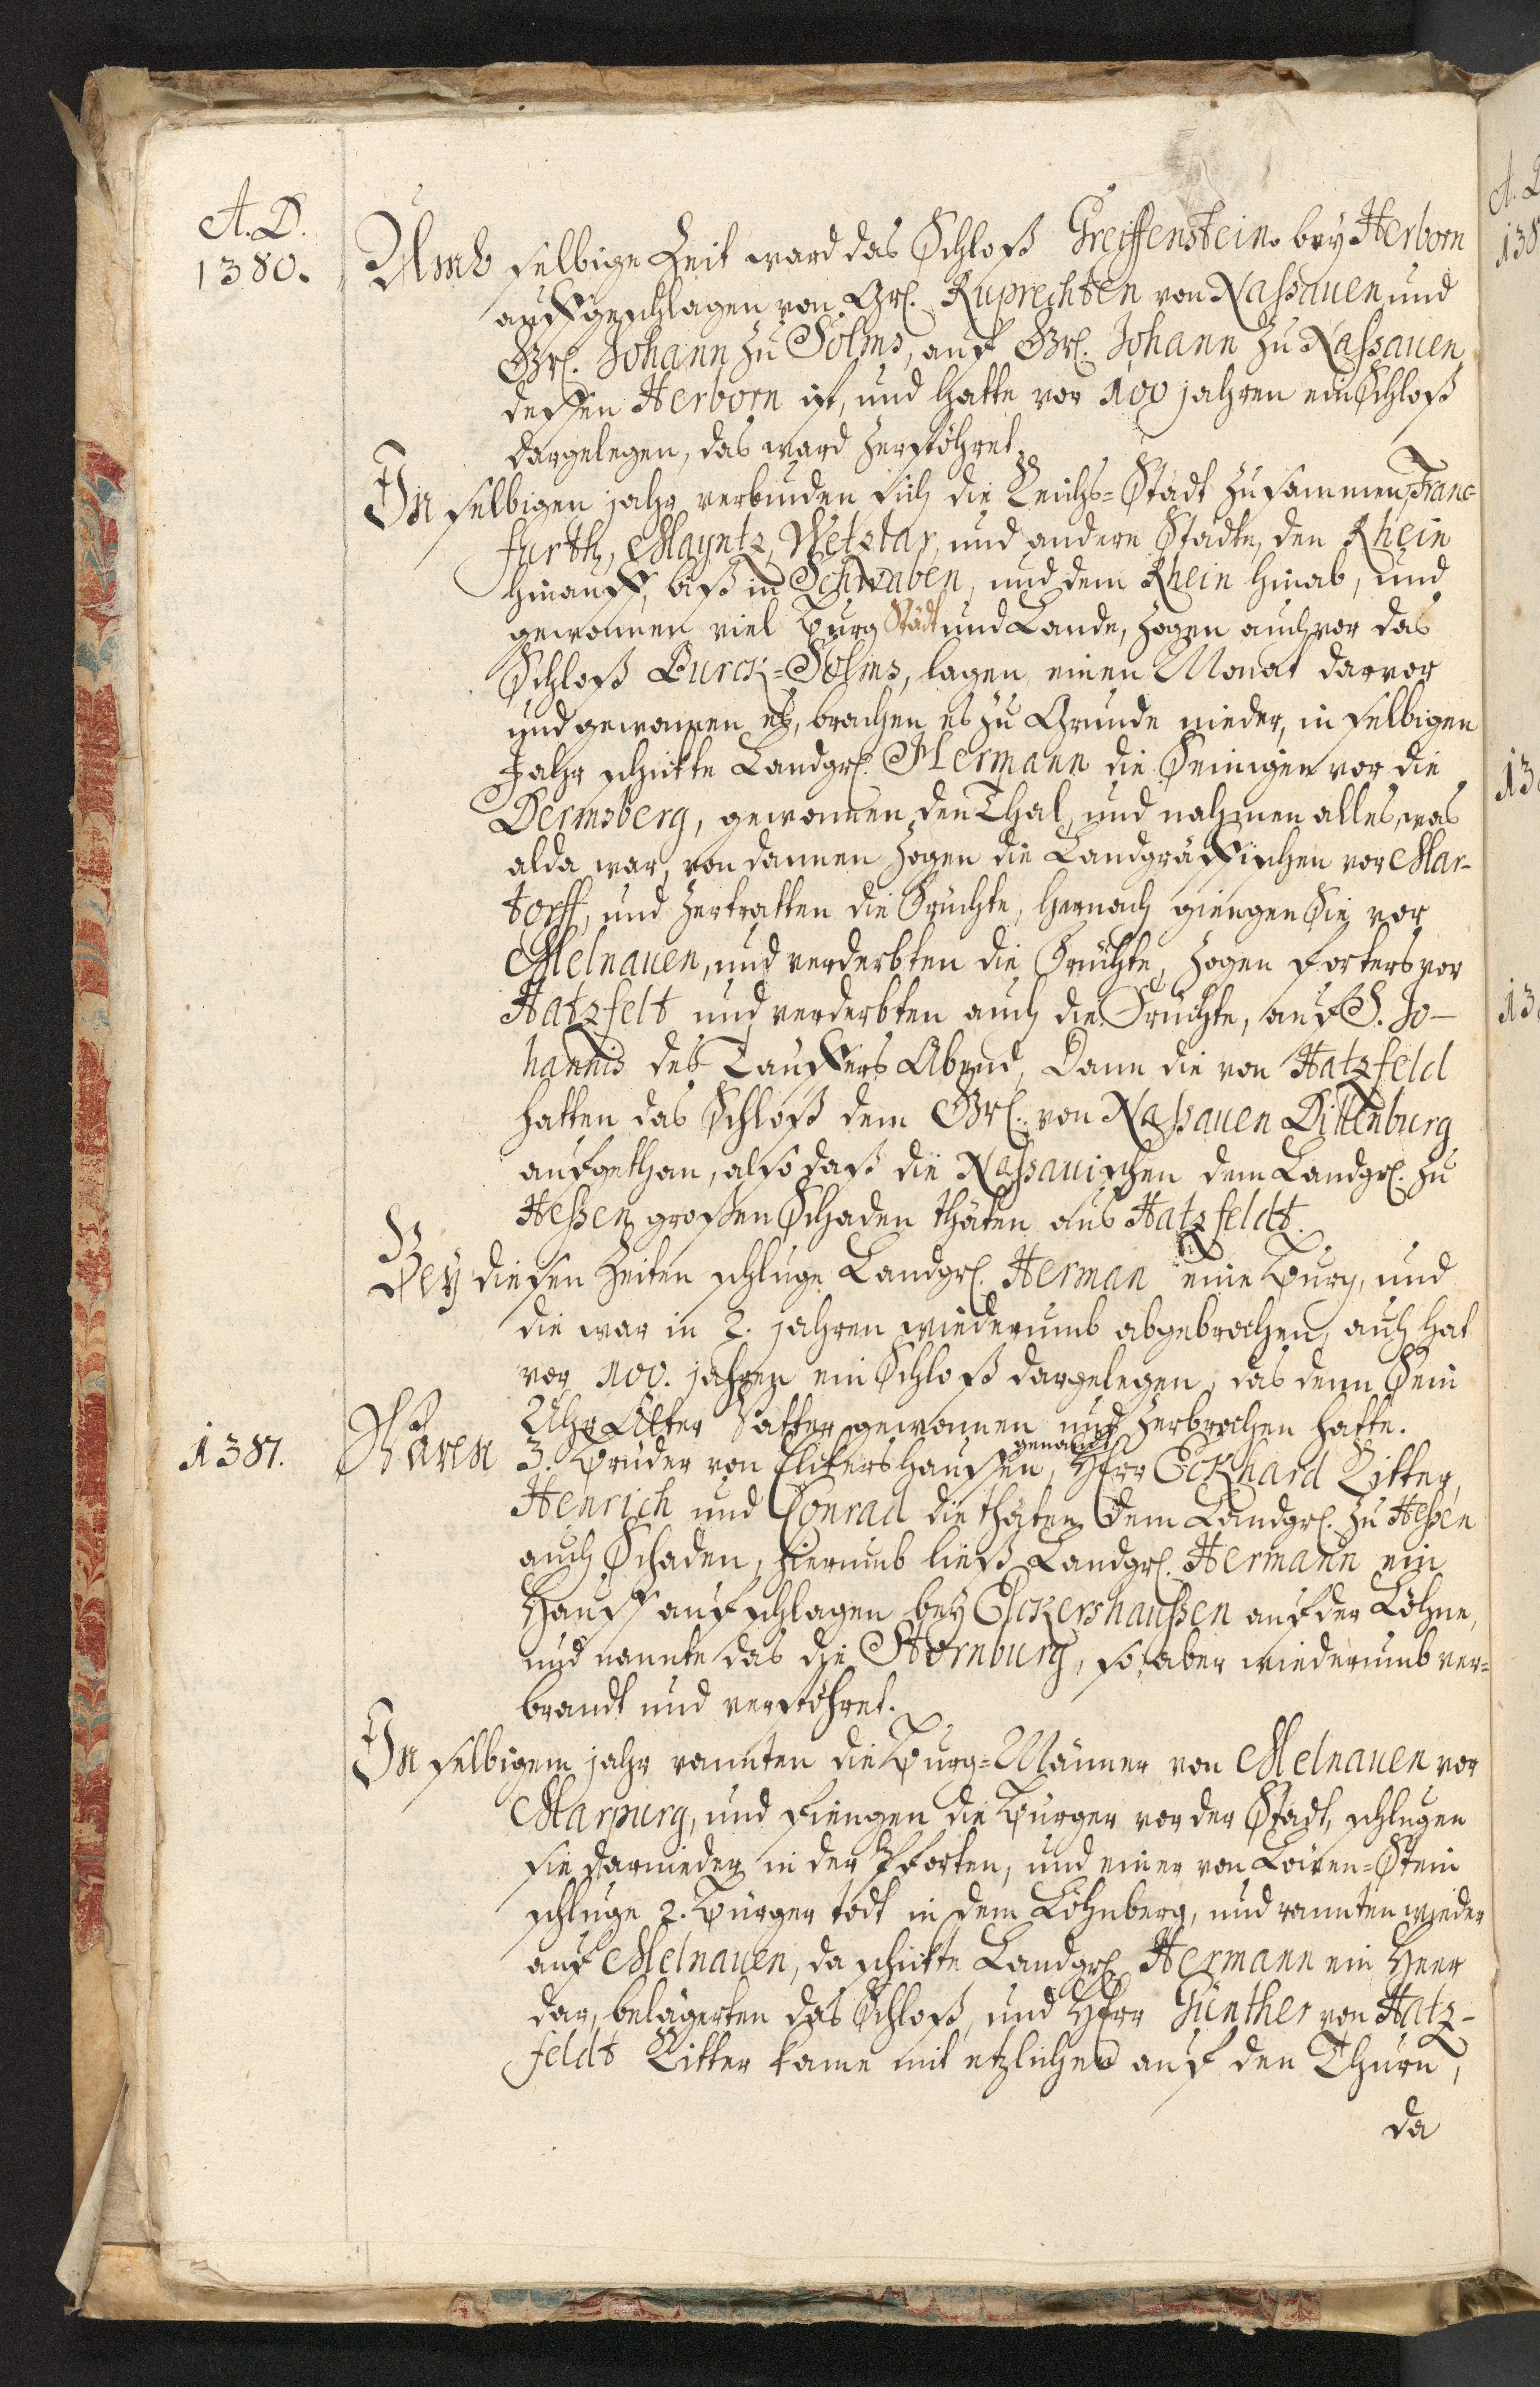 A. D.
1380.
Umb selbige Zeit ward das Schloß Greiffenstein bey Herborn
auffgeschlagen von Gr. Ruprechten von Naßauen und
Gr. Johann zu Solms, auf Gr. Johann zu Naßauen,
deßen Herborn ist, und hatte vor 100 jahren ein Schloß
dargelegen, das ward zerstöhret.
In selbigen jahr verbinden sich die Reichs=Städt zusammen, Franc=
furth, Mayntz, Wetzlar, und andere Städte, den Rhein
hinauff, biß in Schwaben, und dem Rhein hinab, und
gewonnen viel Burg Städt und Lande, zogen auch vor das
Schloß Burck=Solms, lagen einen Monat darvor
und gewonnen es, brachen es zu Grunde nieder, in selbigen
Jahr schickte Landgr. Hermann die Seinigen vor die
Dermsberg, gewonnen den Thal, und nahmen alles, was
alda war, von dannen zogen die Landgräffischen vor Mar-
torff, und zertratten die Früchte, hernach giengen Sie vor
Melnauen, und verderbten die Früchte, zogen forters vor
Hatzfelt und verderbten auch die Früchte, auf S. Jo-
hannis des Tauffers Abend, Dann die von Hatzfeld
hatten das Schloß dem Gr. von Naßauen Dillenburg
aufgethan, also daß die Naßauischen dem Landgr. zu
Heßen großen Schaden thäten aus Hatzfeldt.
Bey diesen Zeiten schluge Landgr. Herman eine Burg, und
die war in 2. jahren wiederumb abgebrochen, auch hat
vor 100. jahren ein Schloß dargelegen, das denn Sein
Uhr Älter Vatter gewonnen und zerbrochen hatte.
1381. Waren 3. Bruder von Elckershaussen, genandt Herr Eckhard Ritter,
Henrich und Conrad die thäten dem Landgr. zu Heßen
auch Schaden, hierumb ließ Landgr. Hermann ein
Hauß aufschlagen bey Elckershaußen auf der Löhne,
und nannte das die Stornburg, so aber wiederumb ver=
brandt und verstöhret.
In selbigem jahr rannten die Burg=Männer von Melnauen vor
Marpurg, und fiengen die Burger vor der Stadt, schlugen
sie darnieder in der Pforten, und einer von Löwen=Stein
schluge 2. Bürger todt in dem Löhnberg, und rannten wieder
auf Melnauen, da schickte Landgr. Hermann ein Heer
dar, belägerten das Schloß, und Herr Günther von Hatz-
feldt Ritter kame mit etzlichen auf den Thurn,
da